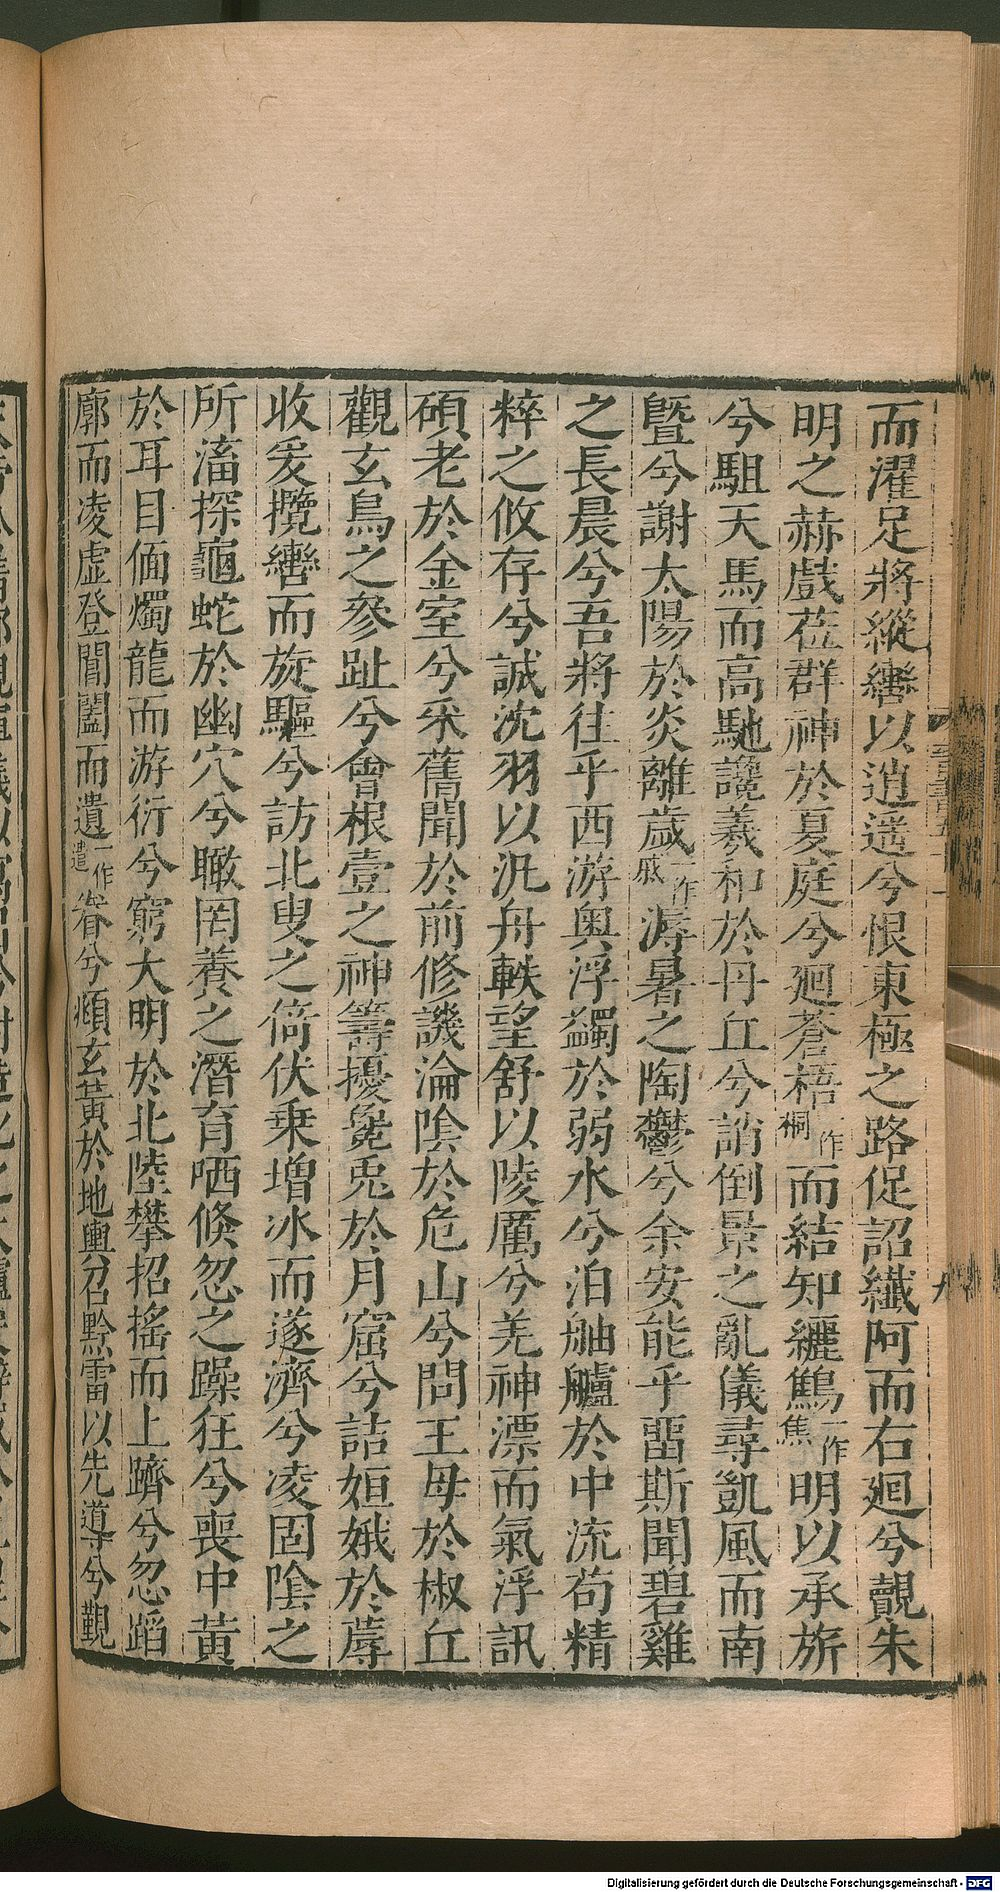 而濯足將縱轡以逍遥兮恨東極之路促詔纖阿而右廻兮覿朱
明之赫戲莅群神於夏庭兮廻蒼梧一作桐而結知纚鷦一作焦明以承旂
兮駔天馬而高馳讒羲和於丹丘兮誚倒景之亂儀尋凱風而南
曁兮謝太陽於炎離歲一作戚溽暑之陶鬱兮余安能乎畱斯聞碧雞
之長晨兮吾將往乎西游奥浮鷁於弱水兮泊舳艫於中流苟精
粹之攸存兮誠沈羽以汎舟軼望舒以陵厲兮羌神漂而氣浮訊
碩老於金室兮采舊聞於前修譏淪陰於危山兮問王母於椒丘
觀玄鳥之參趾兮會根壹之神籌擾毚兎於月窟兮詰姮娥於蓐
收爰攬轡而旋驅兮訪北叟之倚伏乗增冰而遂濟兮凌固陰之
所滀探龜蛇於幽穴兮瞰罔養之潛育哂倏忽之躁狂兮喪中黃
於耳目偭燭龍而游衍兮窮大明於北陸攀招搖而上躋兮忽蹈
廓而凌虛登閶闔而遺一作遣眷兮頫玄黃於地輿召黔雷以先導兮覲
Digitalisierung gefördert durch die Deutsche Forschungsgemeinschaft - DFG